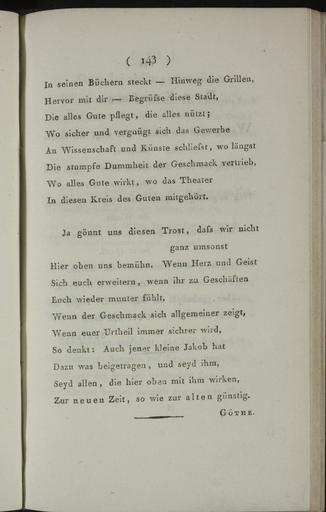 ( 143 )
In seinen Büchern steckt — Hinweg die Grillen,
Hervor mit dir — Begrüſse diese Stadt,
Die alles Gute pflegt, die alles nützt;
Wo sicher und vergnügt sich das Gewerbe
An Wissenschaft und Künste schlieſst, wo längst
Die stumpfe Dummheit der Geschmack vertrieb,
Wo alles Gute wirkt, wo das Theater
In diesen Kreis des Guten mitgehört.
Ja gönnt uns diesen Trost, daſs wir nicht
ganz umsonst
Hier oben uns bemühn. Wenn Herz und Geist
Sich euch erweitern, wenn ihr zu Geschäften
Euch wieder munter fühlt,
Wenn der Geschmack sich allgemeiner zeigt,
Wenn euer Urtheil immer sichrer wird,
So denkt: Auch jener kleine Jakob hat
Dazu was beigetragen, und seyd ihm,
Seyd allen, die hier oben mit ihm wirken,
Zur neuen Zeit, so wie zur alten günstig.
Göthe.